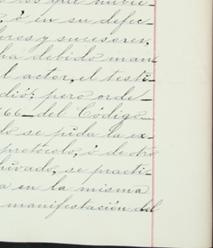 ó en su defec_
bres y sucesores,
ha debido man
l actor, el testi_
dió; pero orde_
66_ del Código
lo se pida la ex_
protocolo, ó de otro
hivado, se practi_
a en la misma
manifestación del